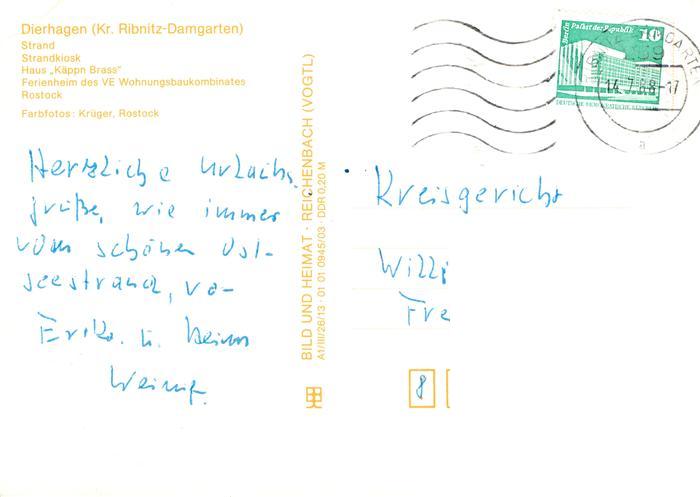 Dierhagen (Kr. Ribnitz-Damgarten)
Strand
Strandkiosk
Haus „Käppn Brass"
Ferienheim des VE Wohnungsbaukombinates
Rostock
Farbfotos: Krüger, Rostock
Herzliche Urlaubs-
grüße, wie immer
vom schönen Ost-
seestrand, 
u.
BILD UND HEIMAT · REICHENBACH (VOGTL)
A1/III/26/13 · 01 01 0945/03 · DDR 0,20 M
Berlin Palast der Republik 10
DEUTSCHE DEMOKRATISCHE REPUBLIK
a
Kreisgericht
Willi
Fre
8